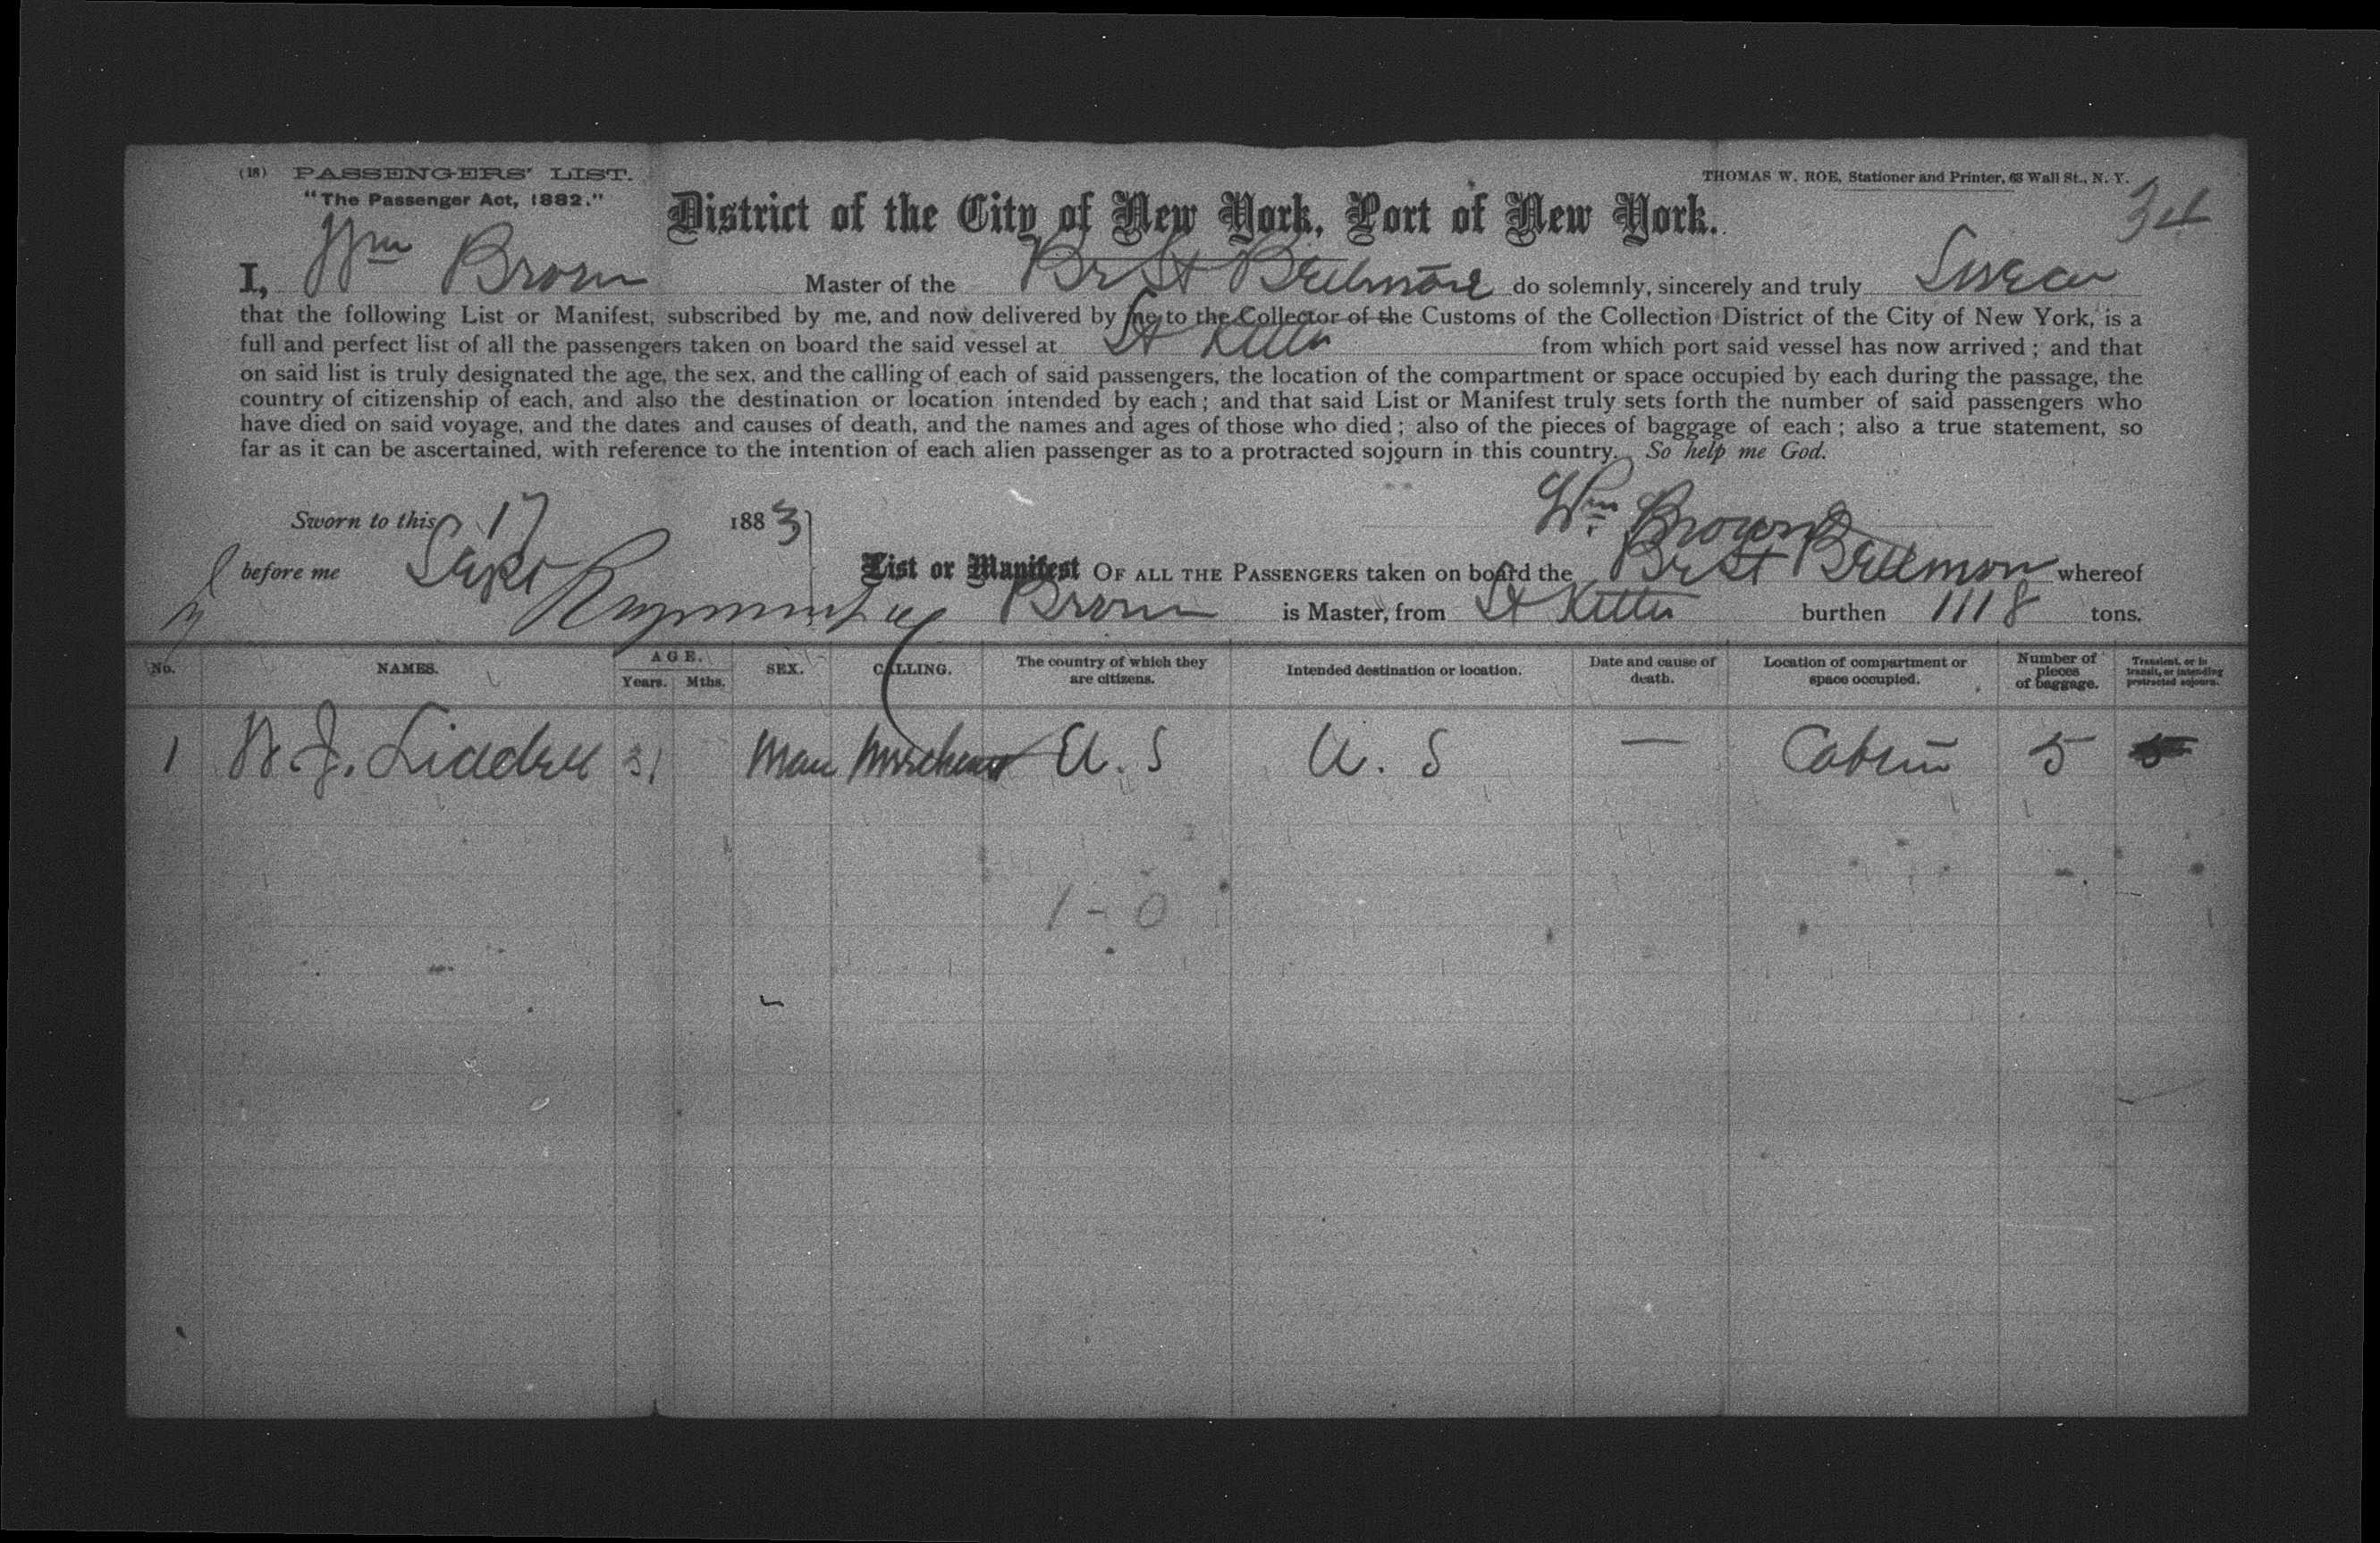 (18) PASSENGERS' LIST.
THOMAS W. ROE, Stationer and Printer, 63 Wall St., N. Y.
"The Passenger Act, 1882."
34
District of the City of New York, Port of New York.
I, Wm Brown Master of the Br St do solemnly, sincerely and truly Swear
that the following List or Manifest, subscribed by me, and now delivered by me to the Collector of the Customs of the Collection District of the City of New York, is a
full and perfect list of all the passengers taken on board the said vessel at St Kitts from which port said vessel has now arrived; and that
on said list is truly designated the age, the sex, and the calling of each of said passengers, the location of the compartment or space occupied by each during the passage, the
country of citizenship of each, and also the destination or location intended by each; and that said List or Manifest truly sets forth the number of said passengers who
have died on said voyage, and the dates and causes of death, and the names and ages of those who died; also of the pieces of baggage of each; also a true statement, so
far as it can be ascertained, with reference to the intention of each alien passenger as to a protracted sojourn in this country. So help me God.
Wm Brown
Sworn to this 17 1883
before me Sept
List or Manifest OF ALL THE PASSENGERS taken on board the Br St whereof
Brown is Master, from St Kitts burthen 1118 tons.
No. NAMES. AGE. Years. Mths. SEX. CALLING. The country of which they are citizens. Intended destination or location. Date and cause of death. Location of compartment or space occupied. Number of pieces of baggage. Transient, or in transit, or intending protracted sojourn.
1 W. J. Liddell 31 Man Merchant U. S U. S — Cabin 5
1 - 0